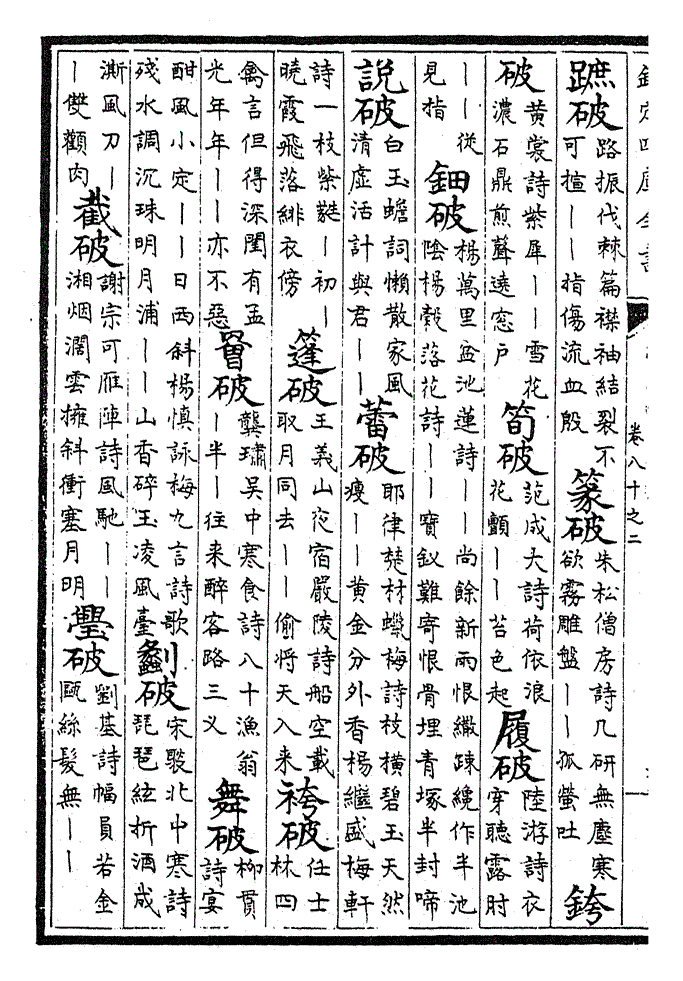 欽定四庫全書
卷八十之二
蹠破路振伐棘篇襟袖結裂不可揎——指傷流血殷篆破朱松僧房詩几研無塵寒欲霧雕盤——孤螢吐銙
破黄裳詩紫犀——雪花濃石鼎煎聲遶窓户筍破范成大詩荷依浪花顫——苔色起屨破陸游詩衣穿聽露肘
——從見指鈿破楊萬里盆池蓮詩——尚餘新雨恨繖疎纔作半池陰楊瑴落花詩——寶釵難寄恨骨埋青塚半封啼
說破白玉蟾詞懶散家風清虚活計與君——蕾破耶律楚材蠟梅詩枝横碧玉天然瘦——黄金分外香楊繼盛梅軒
詩一枝紫蕤—初—曉霞飛落緋衣傍篷破王義山夜宿嚴陵詩船空載取月同去——偷将天入来袴破任士林四
禽言但得深閨有孟光年年——亦不惡罾破龔璛吳中寒食詩八十漁翁—半—往来醉客路三义舞破柳貫詩宴
酣風小定——日西斜楊慎詠梅九言詩歌殘水調沉珠明月浦——山香碎玉凌風臺劙破宋褧北中寒詩琵琶絃折酒成
澌風刀——雙顴肉截破謝宗可雁陣詩風馳——湘烟濶雲擁斜衝塞月明璺破劉基詩幅員若金甌絲髮無——